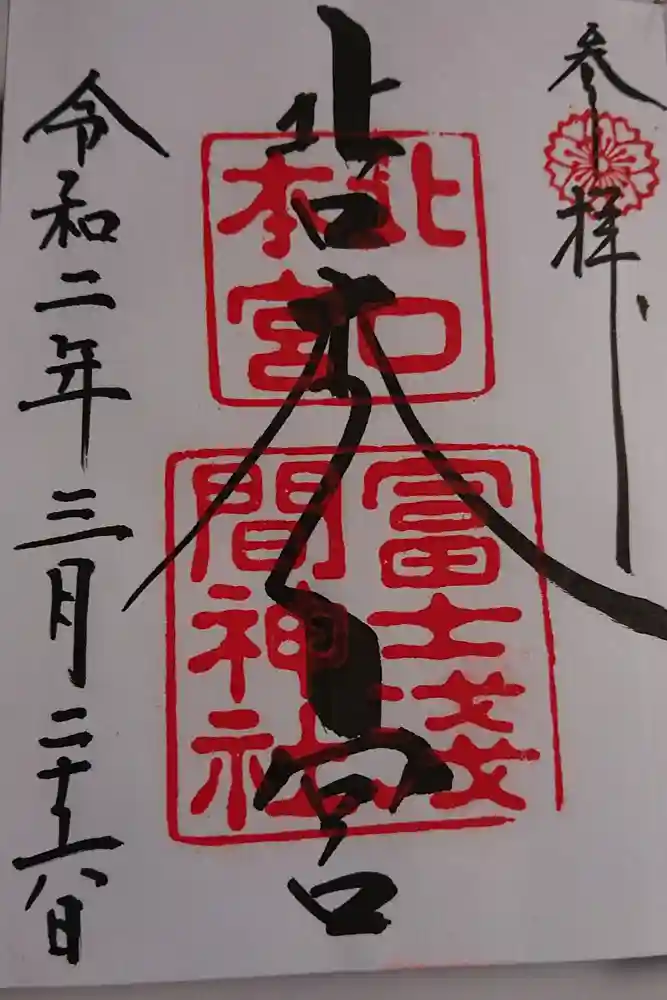 参拝
北口本宮
北口
本宮
富士淺
間神社
令和二年三月二十六日